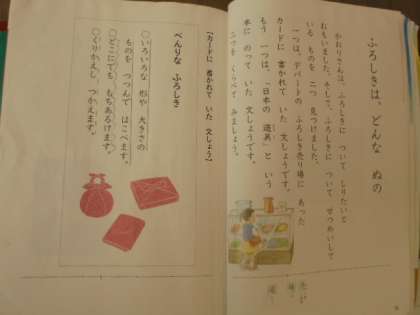 ふろしきは、どんな ぬの
かおりさんは、ふろしきに ついて しりたいと
おもいました。そして、ふろしきに ついて せつめいして
いる ものを 二つ 見つけました。
一つは、デパートの ふろしき売り場に あった
カードに 書かれて いた 文しょうです。
もう 一つは、「日本の 道具」と いう
本に のって いた 文しょうです。
二つを くらべて みましょう。
【カードに 書かれて いた 文しょう】
べんりな ふろしき
○いろいろな 形や 大きさの
ものを つつんで はこべます。
○どこにでも もちあるけます。
○くりかえし つかえます。